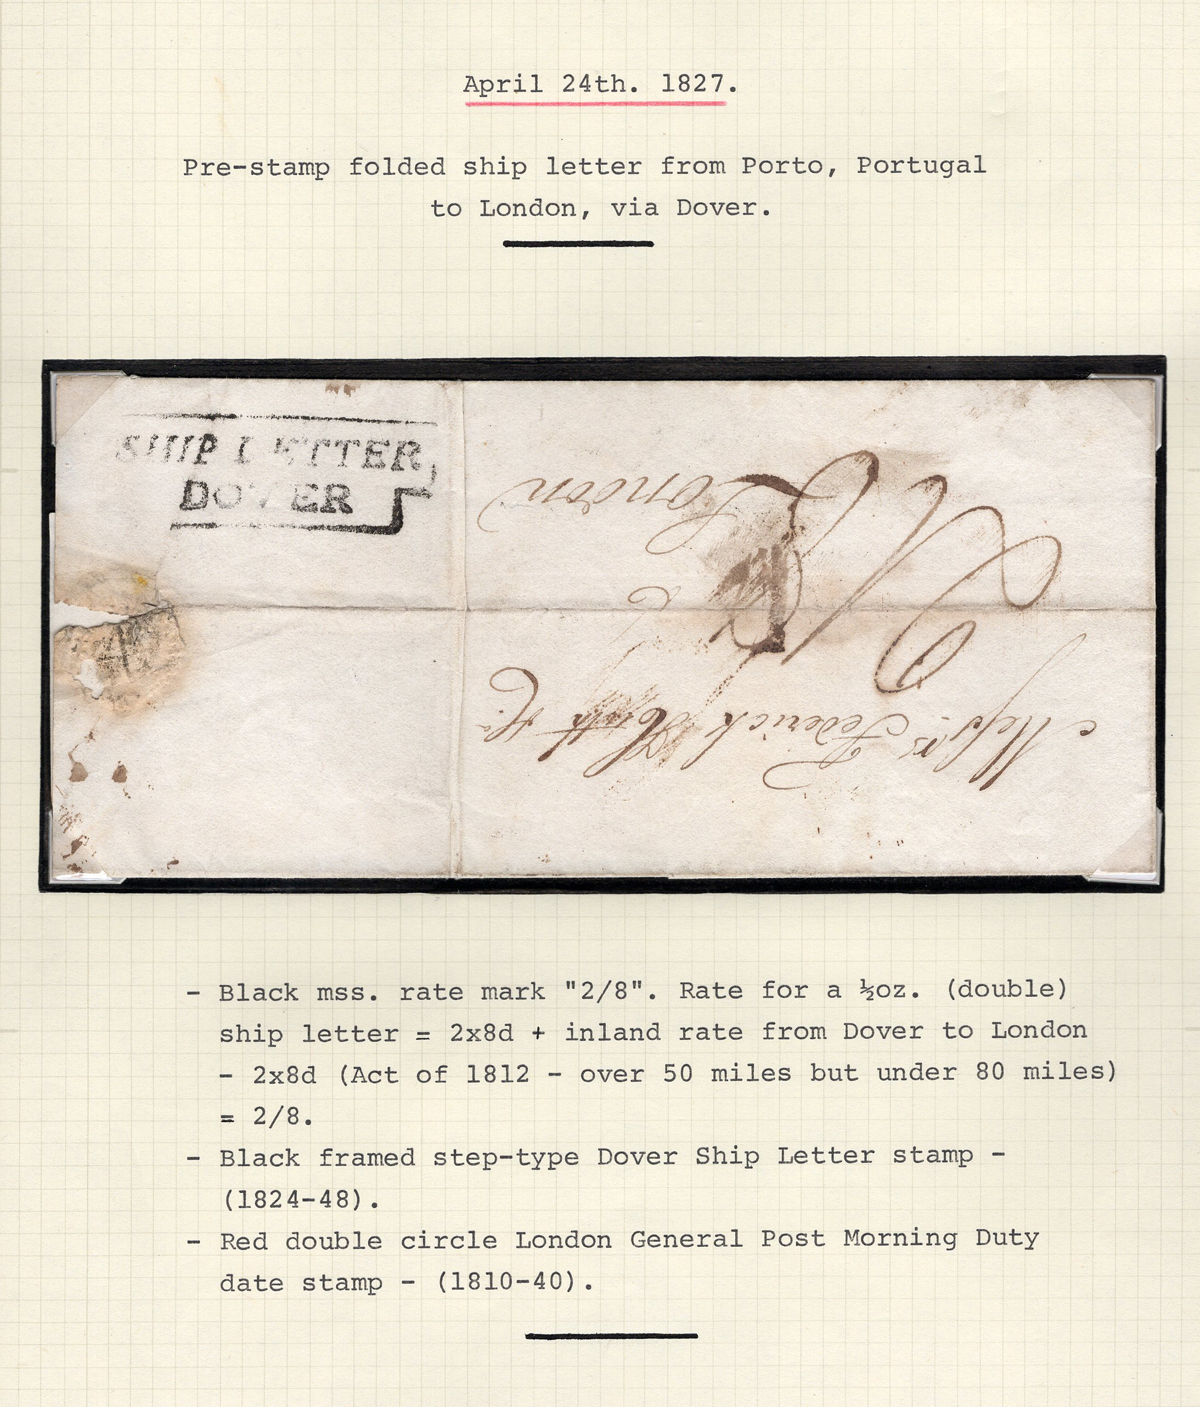 April 24th. 1827.
Pre-stamp folded ship letter from Porto, Portugal
to London, via Dover.
SHIP LETTER
DOVER
Messrs. Frederick Huth & Co
London
2/8
- Black mss. rate mark "2/8". Rate for a ½oz. (double)
ship letter = 2x8d + inland rate from Dover to London
- 2x8d (Act of 1812 - over 50 miles but under 80 miles)
= 2/8.
- Black framed step-type Dover Ship Letter stamp -
(1824-48).
- Red double circle London General Post Morning Duty
date stamp - (1810-40).